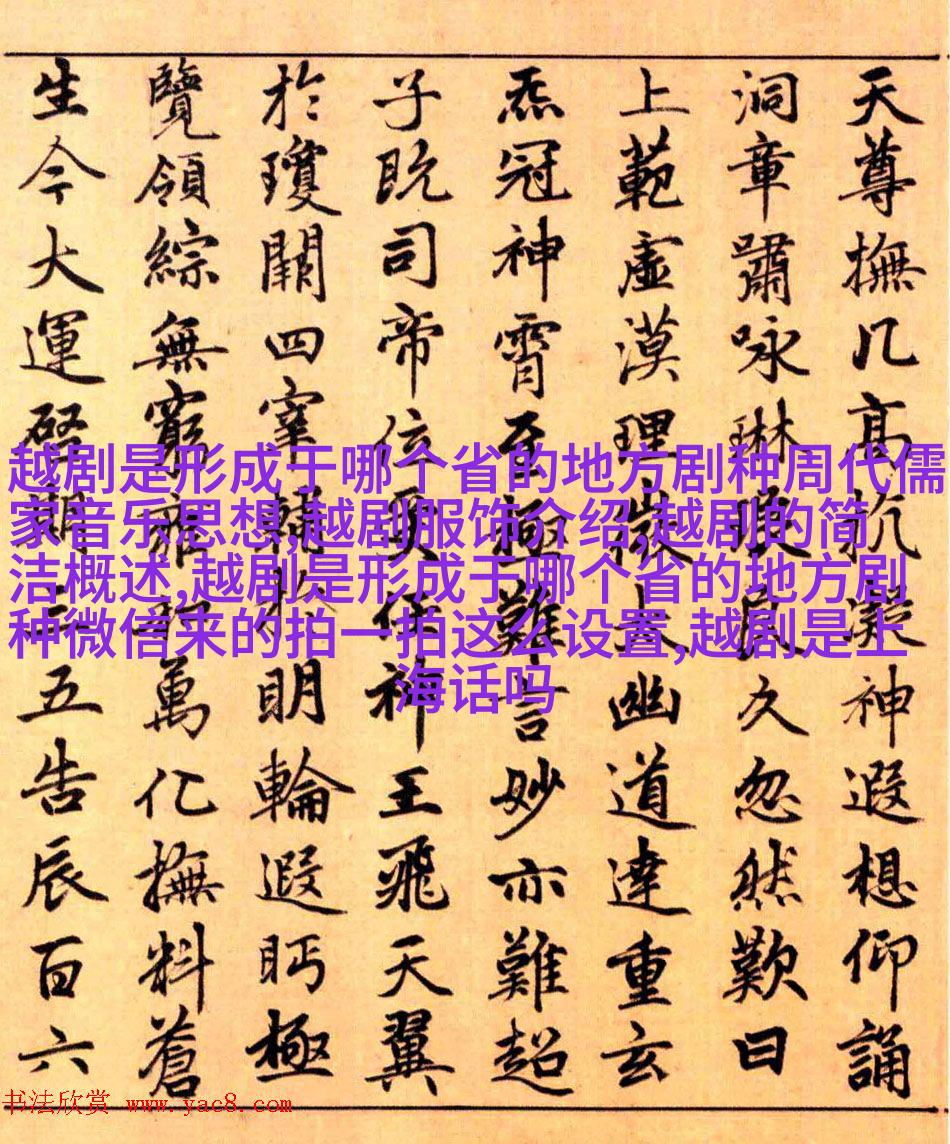 天尊撫几高抗凝神遐想仰誦
洞章嘯咏琳琅良久忽然歎曰
上範虛漠理微太幽道達重玄
炁冠神霄至極難言妙亦難超
子既司帝位受任神王飛天翼
於瓊闕四宰輔明輪遐眄極
覽領綜無窮萬化撫料蒼
生今大運啓期三五告辰百六
越剧是形成于哪个省的地方剧种周代儒
家音乐思想,越剧服饰介绍,越剧的简
洁概述,越剧是形成于哪个省的地方剧
种微信来的拍一拍这么设置,越剧是上
海话吗
书法欣赏 www.yac8.com